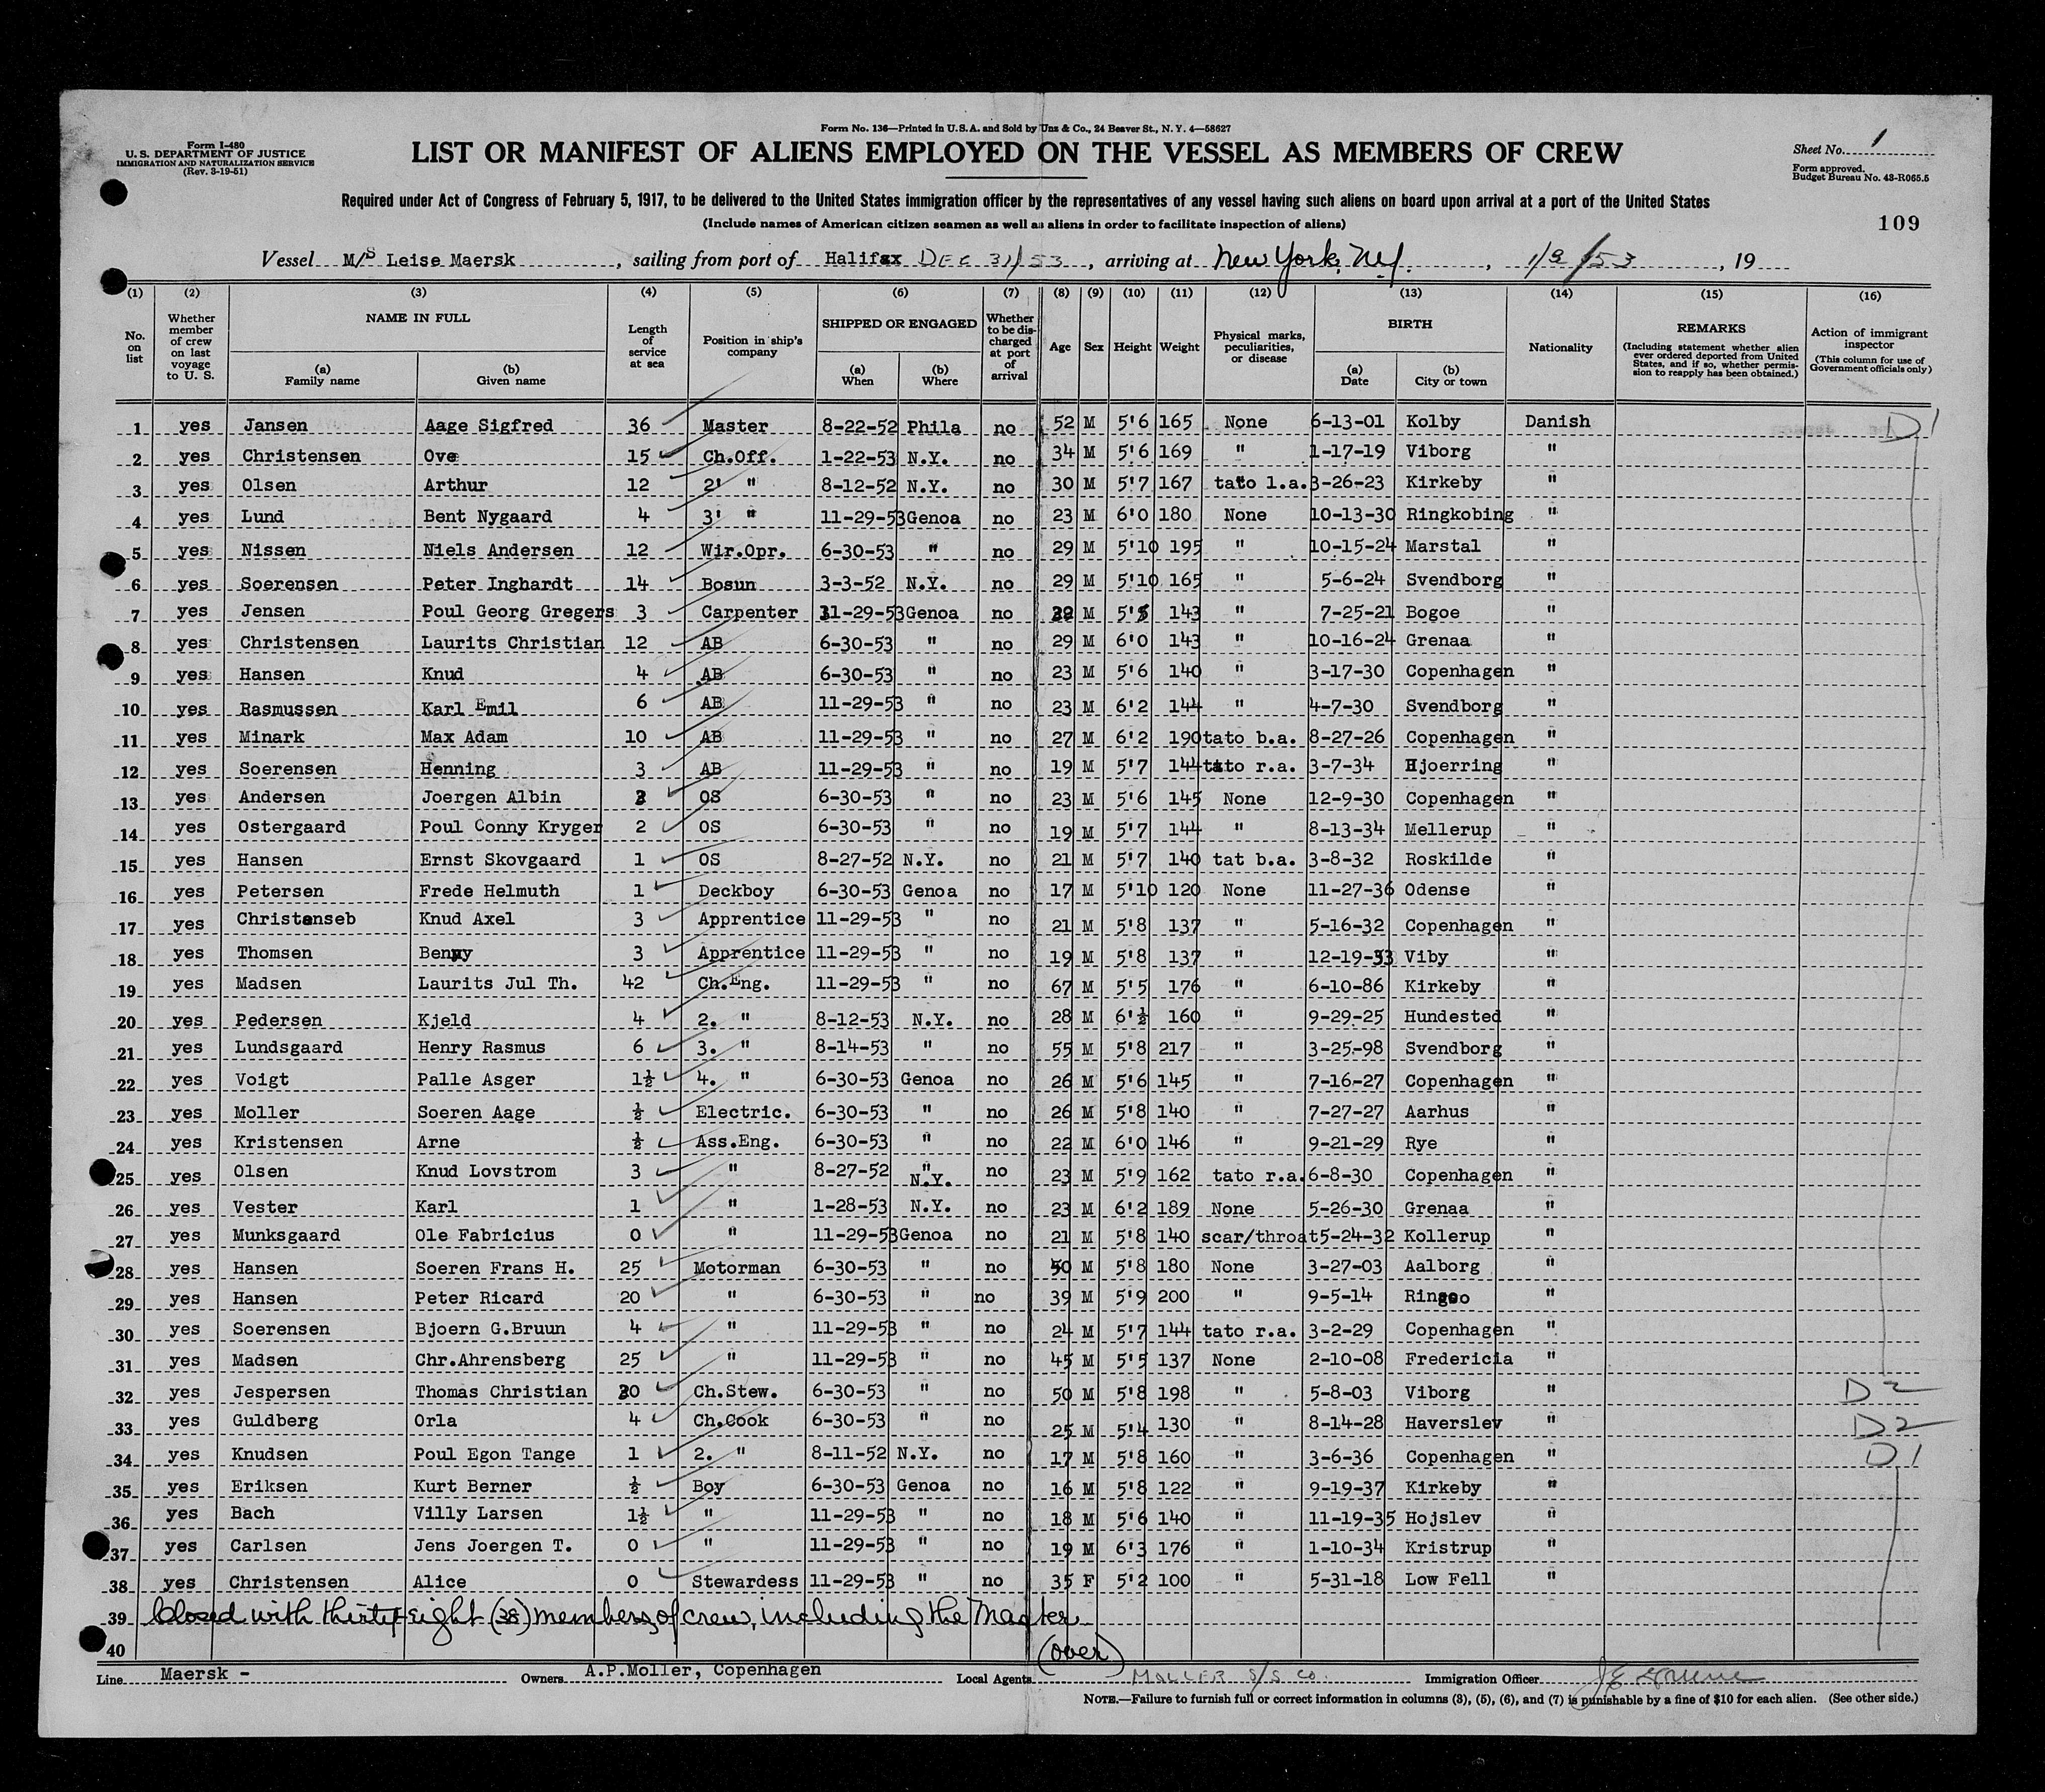 Form No. 136—Printed in U.S.A. and Sold by Unz & Co., 24 Beaver St., N. Y. 4—58627
Form I-480
U. S. DEPARTMENT OF JUSTICE
IMMIGRATION AND NATURALIZATION SERVICE
(Rev. 3-19-51)
LIST OR MANIFEST OF ALIENS EMPLOYED ON THE VESSEL AS MEMBERS OF CREW
Sheet No. 1
Form approved.
Budget Bureau No. 43-R065.5
Required under Act of Congress of February 5, 1917, to be delivered to the United States immigration officer by the representatives of any vessel having such aliens on board upon arrival at a port of the United States
(Include names of American citizen seamen as well as aliens in order to facilitate inspection of aliens)
109
Vessel M/S Leise Maersk, sailing from port of Halifax DEC 31/53, arriving at New York, NY., /53, 19
(1) (2) (3) (4) (5) (6) (7) (8) (9) (10) (11) (12) (13) (14) (15) (16)
No. on list
Whether member of crew on last voyage to U. S.
NAME IN FULL
(a) Family name
(b) Given name
Length of service at sea
Position in ship's company
SHIPPED OR ENGAGED
(a) When
(b) Where
Whether to be discharged at port of arrival
Age
Sex
Height
Weight
Physical marks, peculiarities, or disease
BIRTH
(a) Date
(b) City or town
Nationality
REMARKS
(Including statement whether alien ever ordered deported from United States, and if so, whether permission to reapply has been obtained.)
Action of immigrant inspector
(This column for use of Government officials only)
1 yes Jansen Aage Sigfred 36 Master 8-22-52 Phila no 52 M 5'6 165 None 6-13-01 Kolby Danish D1
2 yes Christensen Ove 15 Ch.Off. 1-22-53 N.Y. no 34 M 5'6 169 " 1-17-19 Viborg "
3 yes Olsen Arthur 12 2' " 8-12-52 N.Y. no 30 M 5'7 167 tato l.a. 3-26-23 Kirkeby "
4 yes Lund Bent Nygaard 4 3' " 11-29-53 Genoa no 23 M 6'0 180 None 10-13-30 Ringkobing "
5 yes Nissen Niels Andersen 12 Wir.Opr. 6-30-53 " no 29 M 5'10 195 " 10-15-24 Marstal "
6 yes Soerensen Peter Inghardt 14 Bosun 3-3-52 N.Y. no 29 M 5'10 165 " 5-6-24 Svendborg "
7 yes Jensen Poul Georg Gregers 3 Carpenter 11-29-53 Genoa no M 143 " 7-25-21 Bogoe "
8 yes Christensen Laurits Christian 12 AB 6-30-53 " no 29 M 6'0 143 " 10-16-24 Grenaa "
9 yes Hansen Knud 4 AB 6-30-53 " no 23 M 5'6 140 " 3-17-30 Copenhagen "
10 yes Rasmussen Karl Emil 6 AB 11-29-53 " no 23 M 6'2 144 " 4-7-30 Svendborg "
11 yes Minark Max Adam 10 AB 11-29-53 " no 27 M 6'2 190 tato b.a. 8-27-26 Copenhagen "
12 yes Soerensen Henning 3 AB 11-29-53 " no 19 M 5'7 144 tato r.a. 3-7-34 Hjoerring "
13 yes Andersen Joergen Albin OS 6-30-53 " no 23 M 5'6 145 None 12-9-30 Copenhagen "
14 yes Ostergaard Poul Conny Kryger 2 OS 6-30-53 " no 19 M 5'7 144 " 8-13-34 Mellerup "
15 yes Hansen Ernst Skovgaard 1 OS 8-27-52 N.Y. no 21 M 5'7 140 tat b.a. 3-8-32 Roskilde "
16 yes Petersen Frede Helmuth 1 Deckboy 6-30-53 Genoa no 17 M 5'10 120 None 11-27-36 Odense "
17 yes Christenseb Knud Axel 3 Apprentice 11-29-53 " no 21 M 5'8 137 " 5-16-32 Copenhagen "
18 yes Thomsen Benny 3 Apprentice 11-29-53 " no 19 M 5'8 137 " 12-19-33 Viby "
19 yes Madsen Laurits Jul Th. 42 Ch.Eng. 11-29-53 " no 67 M 5'5 176 " 6-10-86 Kirkeby "
20 yes Pedersen Kjeld 4 2. " 8-12-53 N.Y. no 28 M 6'½ 160 " 9-29-25 Hundested "
21 yes Lundsgaard Henry Rasmus 6 3. " 8-14-53 " no 55 M 5'8 217 " 3-25-98 Svendborg "
22 yes Voigt Palle Asger 1½ 4. " 6-30-53 Genoa no 26 M 5'6 145 " 7-16-27 Copenhagen "
23 yes Moller Soeren Aage ½ Electric. 6-30-53 " no 26 M 5'8 140 " 7-27-27 Aarhus "
24 yes Kristensen Arne ½ Ass.Eng. 6-30-53 " no 22 M 6'0 146 " 9-21-29 Rye "
25 yes Olsen Knud Lovstrom 3 " 8-27-52 " N.Y. no 23 M 5'9 162 tato r.a. 6-8-30 Copenhagen "
26 yes Vester Karl 1 " 1-28-53 N.Y. no 23 M 6'2 189 None 5-26-30 Grenaa "
27 yes Munksgaard Ole Fabricius 0 " 11-29-53 Genoa no 21 M 5'8 140 scar/throat 5-24-32 Kollerup "
28 yes Hansen Soeren Frans H. 25 Motorman 6-30-53 " no 50 M 5'8 180 None 3-27-03 Aalborg "
29 yes Hansen Peter Ricard 20 " 6-30-53 " no 39 M 5'9 200 " 9-5-14 "
30 yes Soerensen Bjoern G.Bruun 4 " 11-29-53 " no 24 M 5'7 144 tato r.a. 3-2-29 Copenhagen "
31 yes Madsen Chr.Ahrensberg 25 " 11-29-53 " no 45 M 5'5 137 None 2-10-08 Fredericia "
32 yes Jespersen Thomas Christian Ch.Stew. 6-30-53 " no 50 M 5'8 198 " 5-8-03 Viborg " D2
33 yes Guldberg Orla 4 Ch.Cook 6-30-53 " no 25 M 5'4 130 " 8-14-28 Haverslev " D2
34 yes Knudsen Poul Egon Tange 1 2. " 8-11-52 N.Y. no 17 M 5'8 160 " 3-6-36 Copenhagen " D1
35 yes Eriksen Kurt Berner ½ Boy 6-30-53 Genoa no 16 M 5'8 122 " 9-19-37 Kirkeby "
36 yes Bach Villy Larsen 1½ " 11-29-53 " no 18 M 5'6 140 " 11-19-35 Hojslev "
37 yes Carlsen Jens Joergen T. 0 " 11-29-53 " no 19 M 6'3 176 " 1-10-34 Kristrup "
38 yes Christensen Alice 0 Stewardess 11-29-53 " no 35 F 5'2 100 " 5-31-18 Low Fell "
39 Closed with thirty-eight (38) members of crew, including the Master
40 (over)
Line Maersk - Owners A.P.Moller, Copenhagen Local Agents MOLLER S/S CO. Immigration Officer
NOTE.—Failure to furnish full or correct information in columns (3), (5), (6), and (7) is punishable by a fine of $10 for each alien. (See other side.)